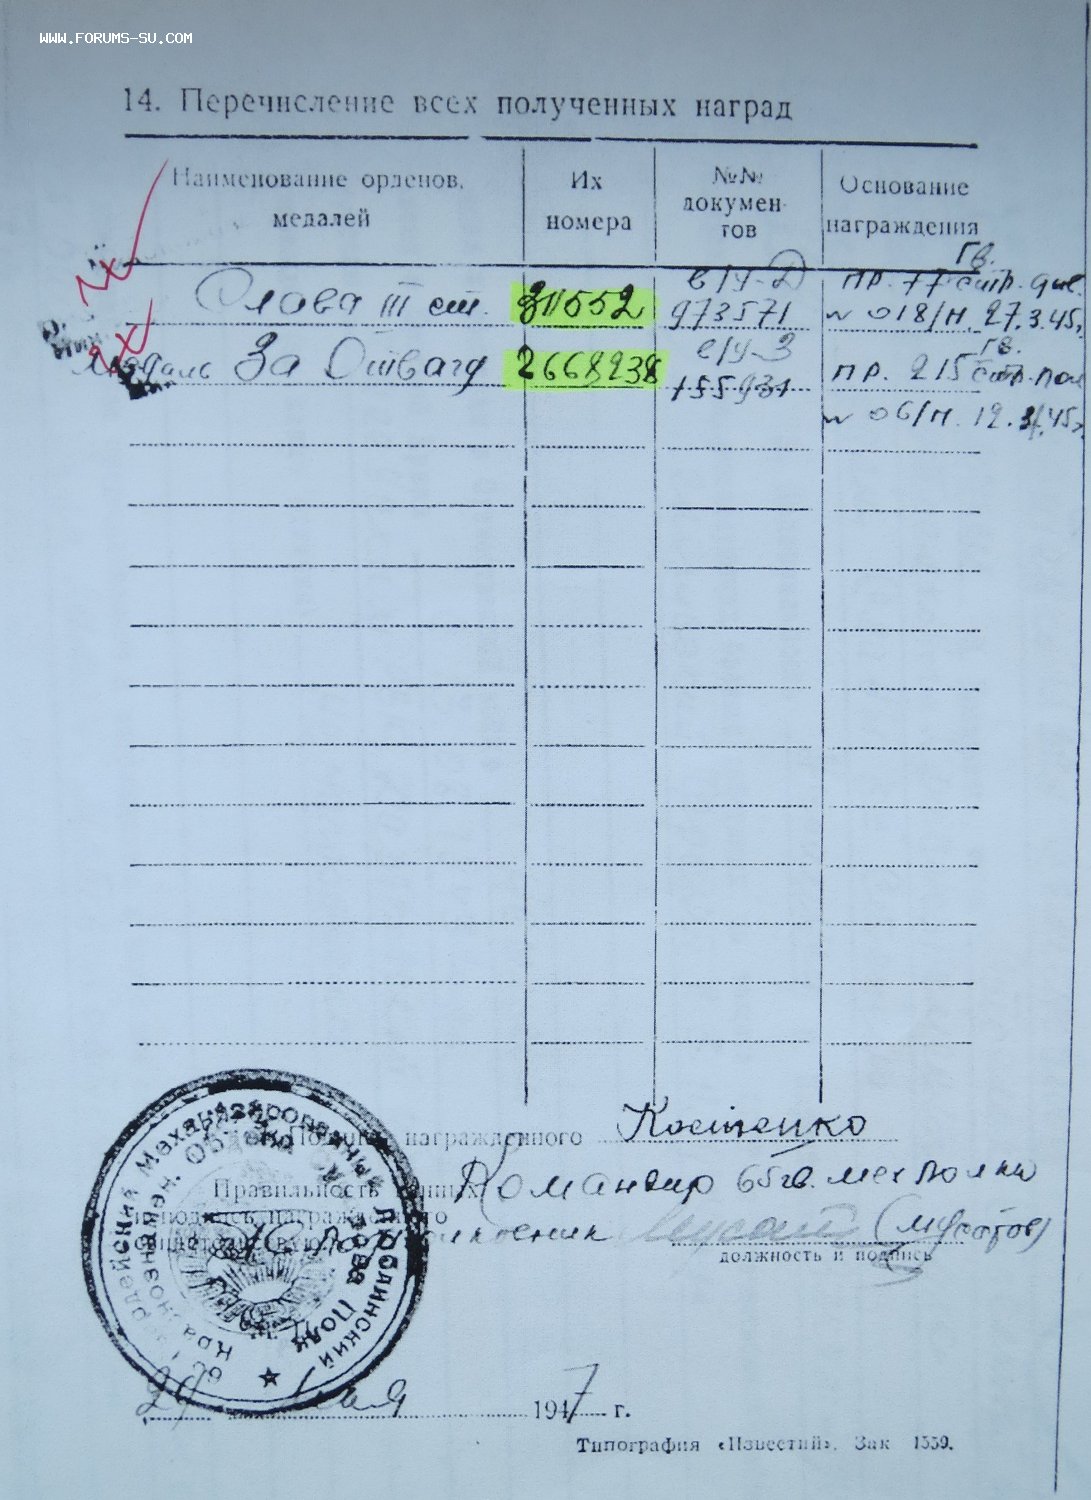 WWW.FORUMS-SU.COM
14. Перечисление всех полученных наград
Наименование орденов, медалей
Их номера
№№ документов
Основание награждения
Слава III ст.
311552
в/у-Д
973571
гв.
пр. 77 стр. див.
№ 018/н. 27.3.45г
Медаль За Отвагу
2668238
в/у-З
155931
гв.
пр. 215 стр. пол
№ 06/н. 12.3.45г
Подпись награжденного Костенко
Правильность данных
и подпись награжденного
Командир 65 гв. мех полка
подполковник (Мусатов)
должность и подпись
Механизированный Люблинский
Краснознамен.
Полк
29 мая 1947 г.
Типография «Известий». Зак 1559.